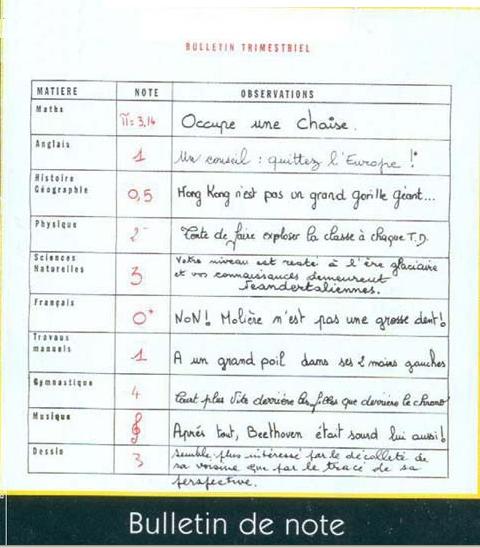 BULLETIN TRIMESTRIEL
MATIERE NOTE OBSERVATIONS
Maths π = 3,14 Occupe une chaise.
Anglais 1 Un conseil : quittez l'Europe !
Histoire
Géographie 0,5 Hong Kong n'est pas un grand gorille géant...
Physique 2- Tente de faire exploser la classe à chaque T.D.
Sciences
Naturelles 3 Votre niveau est resté à l'ère glaciaire
et vos connaissances demeurent
Néandertaliennes.
Français 0+ NON! Molière n'est pas une grosse dent!
Travaux
manuels 1 A un grand poil dans ses 2 mains gauches
Gymnastique 4 Court plus vite derrière les filles que derrière le chrono!
Musique 𝄞 Après tout, Beethoven était sourd lui aussi!
Dessin 3 Semble plus intéressé par le décolleté de
sa voisine que par le tracé de sa
perspective.
Bulletin de note